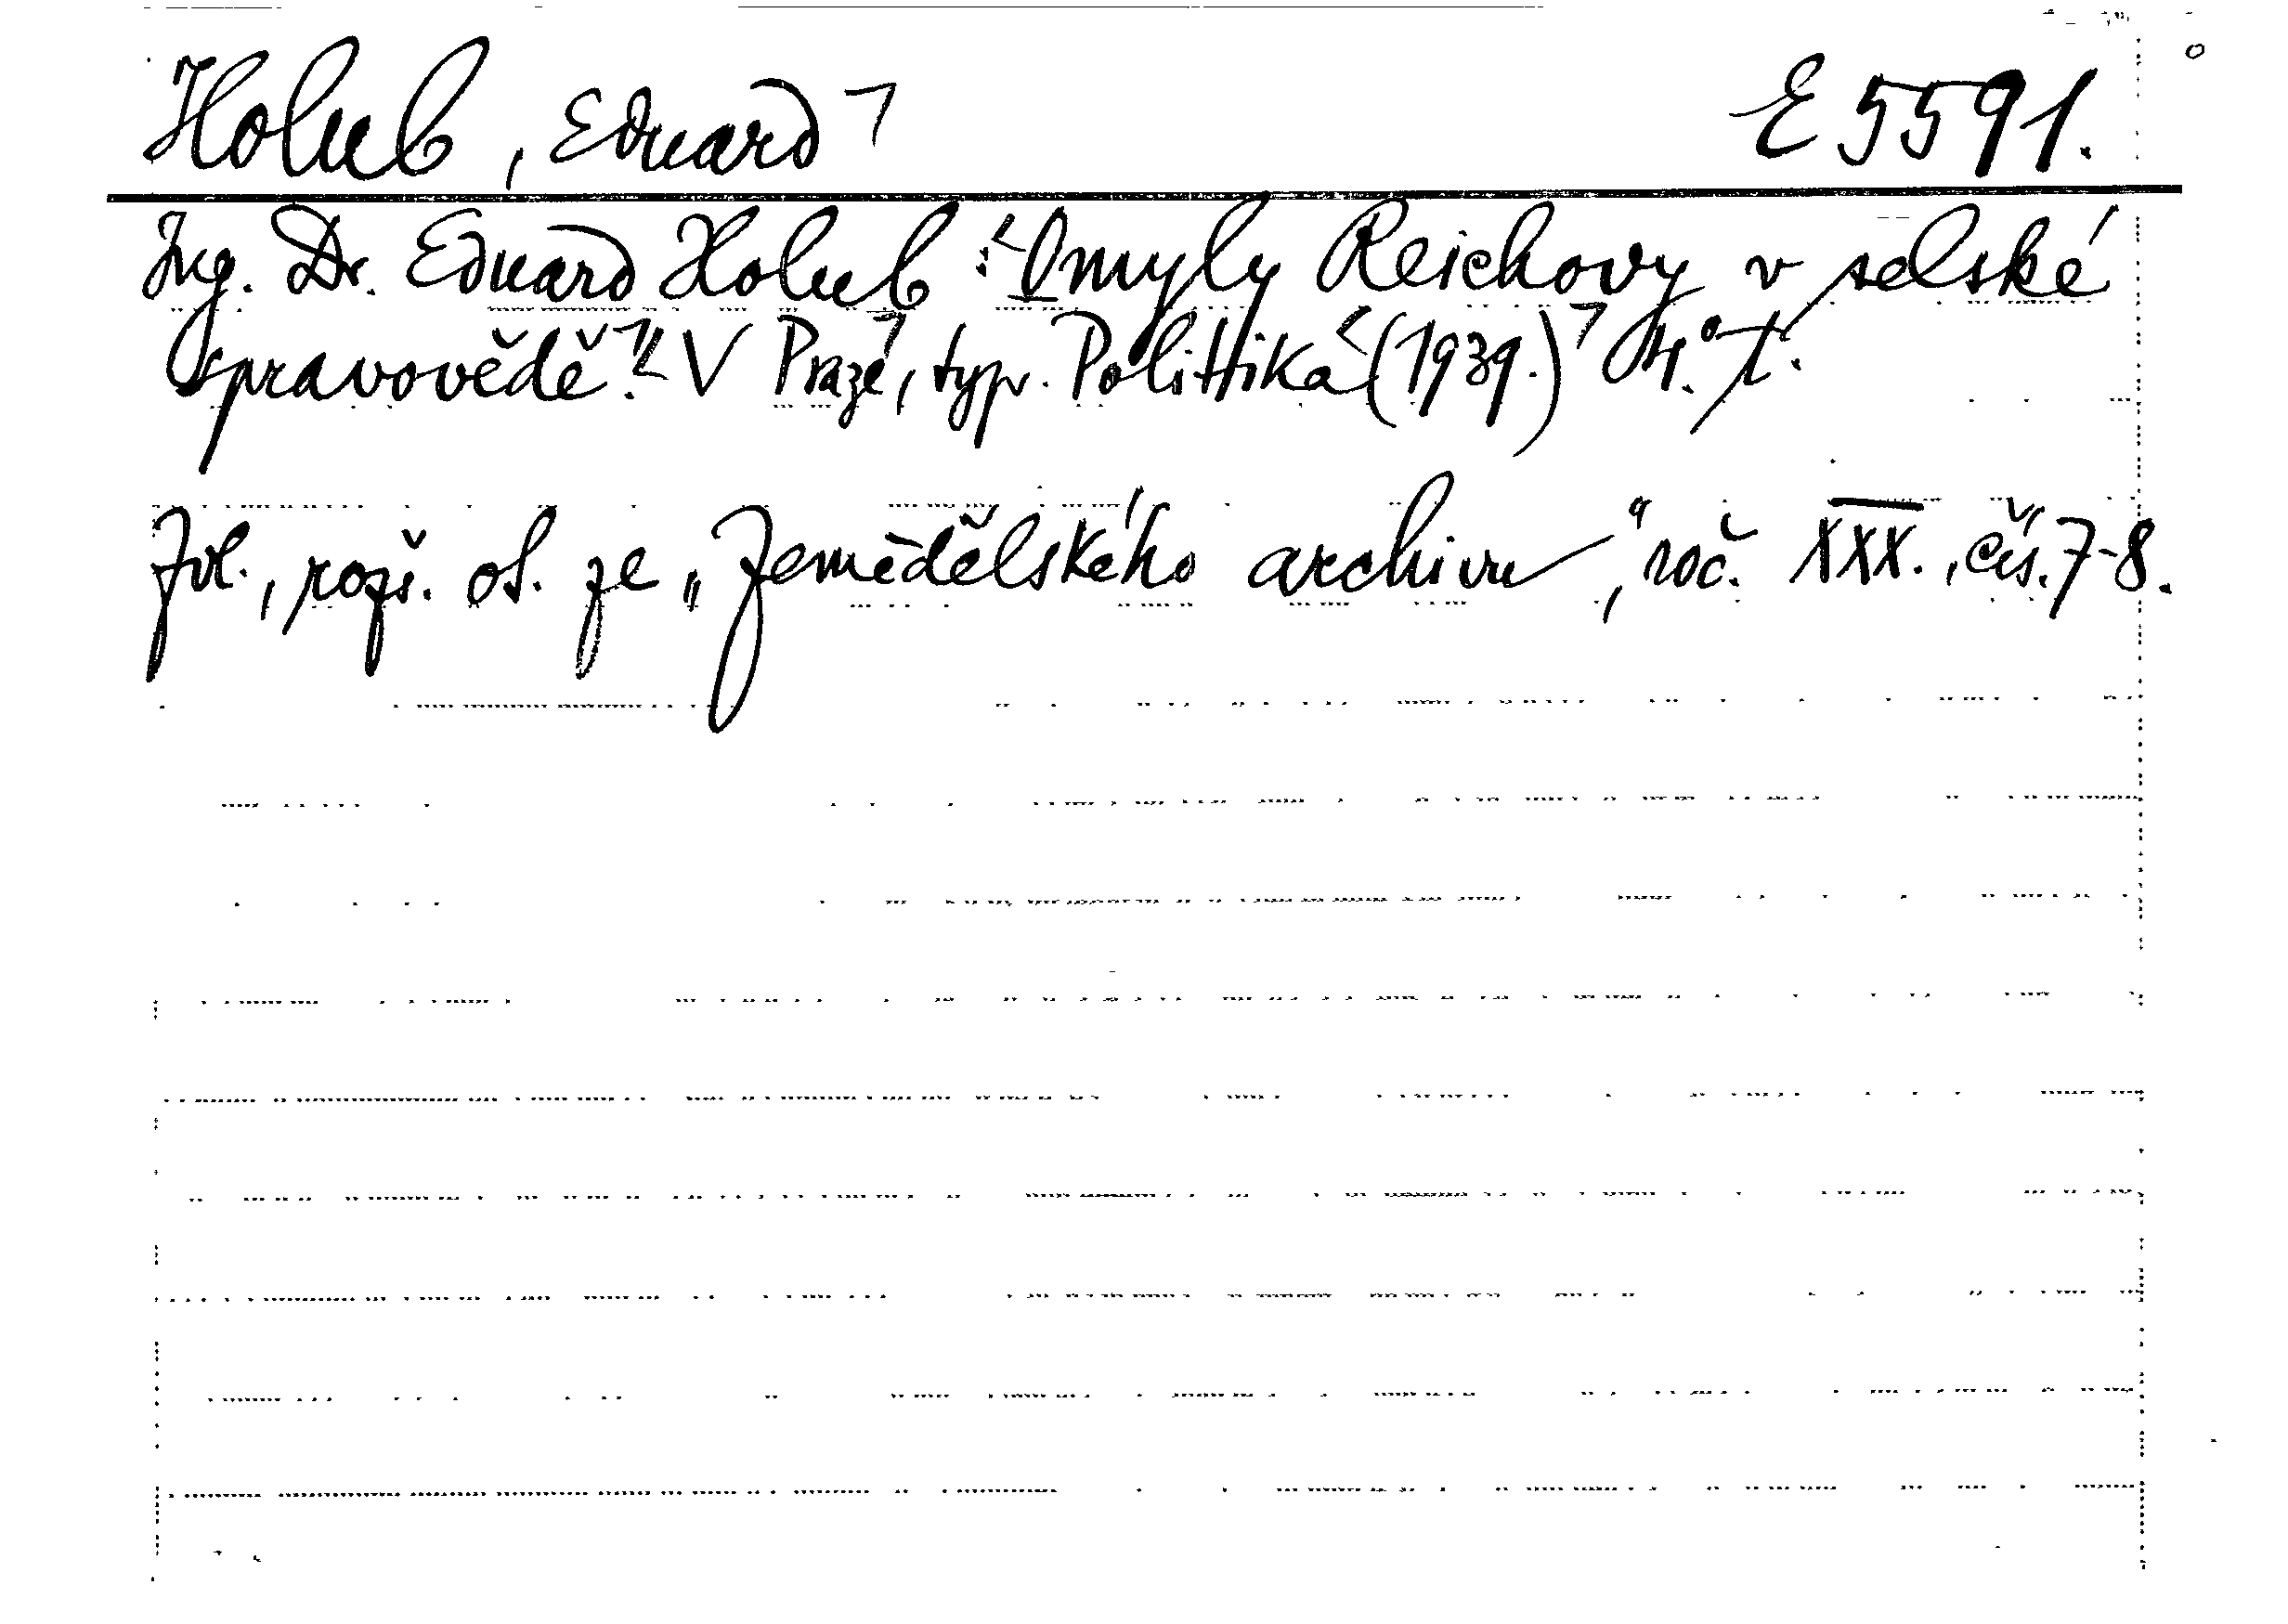 Holub, Eduard E 5591.
Ing. Dr. Eduard Holub: Omyly Reichovy v selské
pravovědě. V Praze, typ. Politika (1939.) 4.°
Zvl., rozš. ot. ze „Zemědělského archivu“, roč. XXX., čís. 7-8.